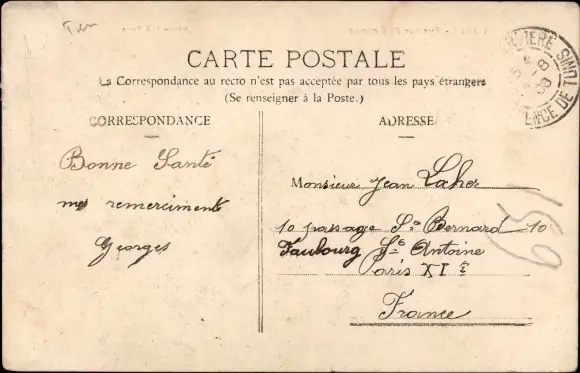 CARTE POSTALE
La Correspondance au recto n'est pas acceptée par tous les pays étrangers
(Se renseigner à la Poste.)
CORRESPONDANCE
ADRESSE
Bonne Santé
mes remerciments
Georges
Monsieur Jean Laher
10 passage St Bernard 10
Faubourg St Antoine
Paris XIe
France